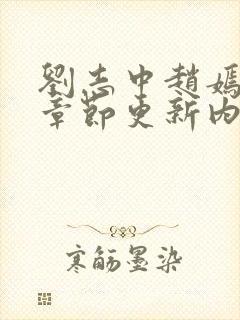 劉志中趙嫣
章節更新內
寒觞墨染